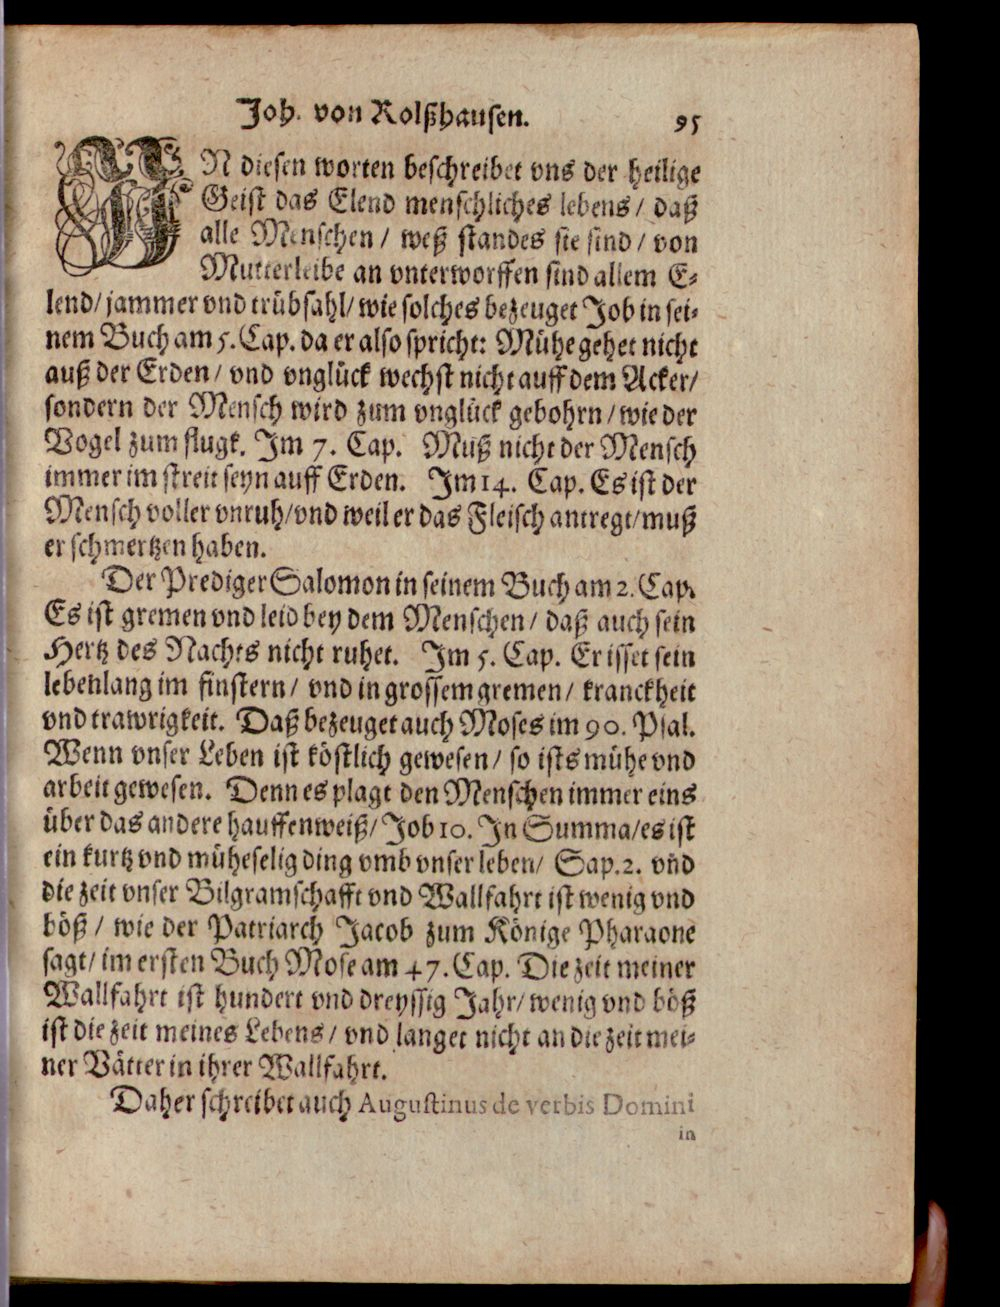 Joh. von Rolßhausen. 95
IN diesen worten beschreibet vns der heilige
Geist das Elend menschliches lebens / daß
alle Menschen / weß standes sie sind / von
Mutterleibe an vnterworffen sind allem E-
lend / jammer vnd trübsahl / wie solches bezeuget Job in sei-
nem Buch am 5. Cap. da er also spricht: Mühe gehet nicht
auß der Erden / vnd vnglück wechst nicht auff dem Acker /
sondern der Mensch wird zum vnglück gebohrn / wie der
Vogel zum flugk. Im 7. Cap. Muß nicht der Mensch
immer im streit seyn auff Erden. Im 14. Cap. Es ist der
Mensch voller vnruh / vnd weil er das Fleisch antregt / muß
er schmertzen haben.
Der Prediger Salomon in seinem Buch am 2. Cap.
Es ist gremen vnd leid bey dem Menschen / daß auch sein
Hertz des Nachts nicht ruhet. Im 5. Cap. Er isset sein
lebenlang im finstern / vnd in grossem gremen / kranckheit
vnd trawrigkeit. Daß bezeuget auch Moses im 90. Psal.
Wenn vnser Leben ist köstlich gewesen / so ists mühe vnd
arbeit gewesen. Denn es plagt den Menschen immer eins
über das andere hauffenweiß / Job 10. In Summa / es ist
ein kurtz vnd müheselig ding vmb vnser leben / Sap. 2. vñd
die zeit vnser Bilgramschafft vnd Wallfahrt ist wenig vnd
böß / wie der Patriarch Jacob zum Könige Pharaone
sagt / im ersten Buch Mose am 47. Cap. Die zeit meiner
Wallfahrt ist hundert vnd dreyssig Jahr / wenig vnd böß
ist die zeit meines Lebens / vnd langet nicht an die zeit mei-
ner Vätter in ihrer Wallfahrt.
Daher schreibet auch Augustinus de verbis Domini
in